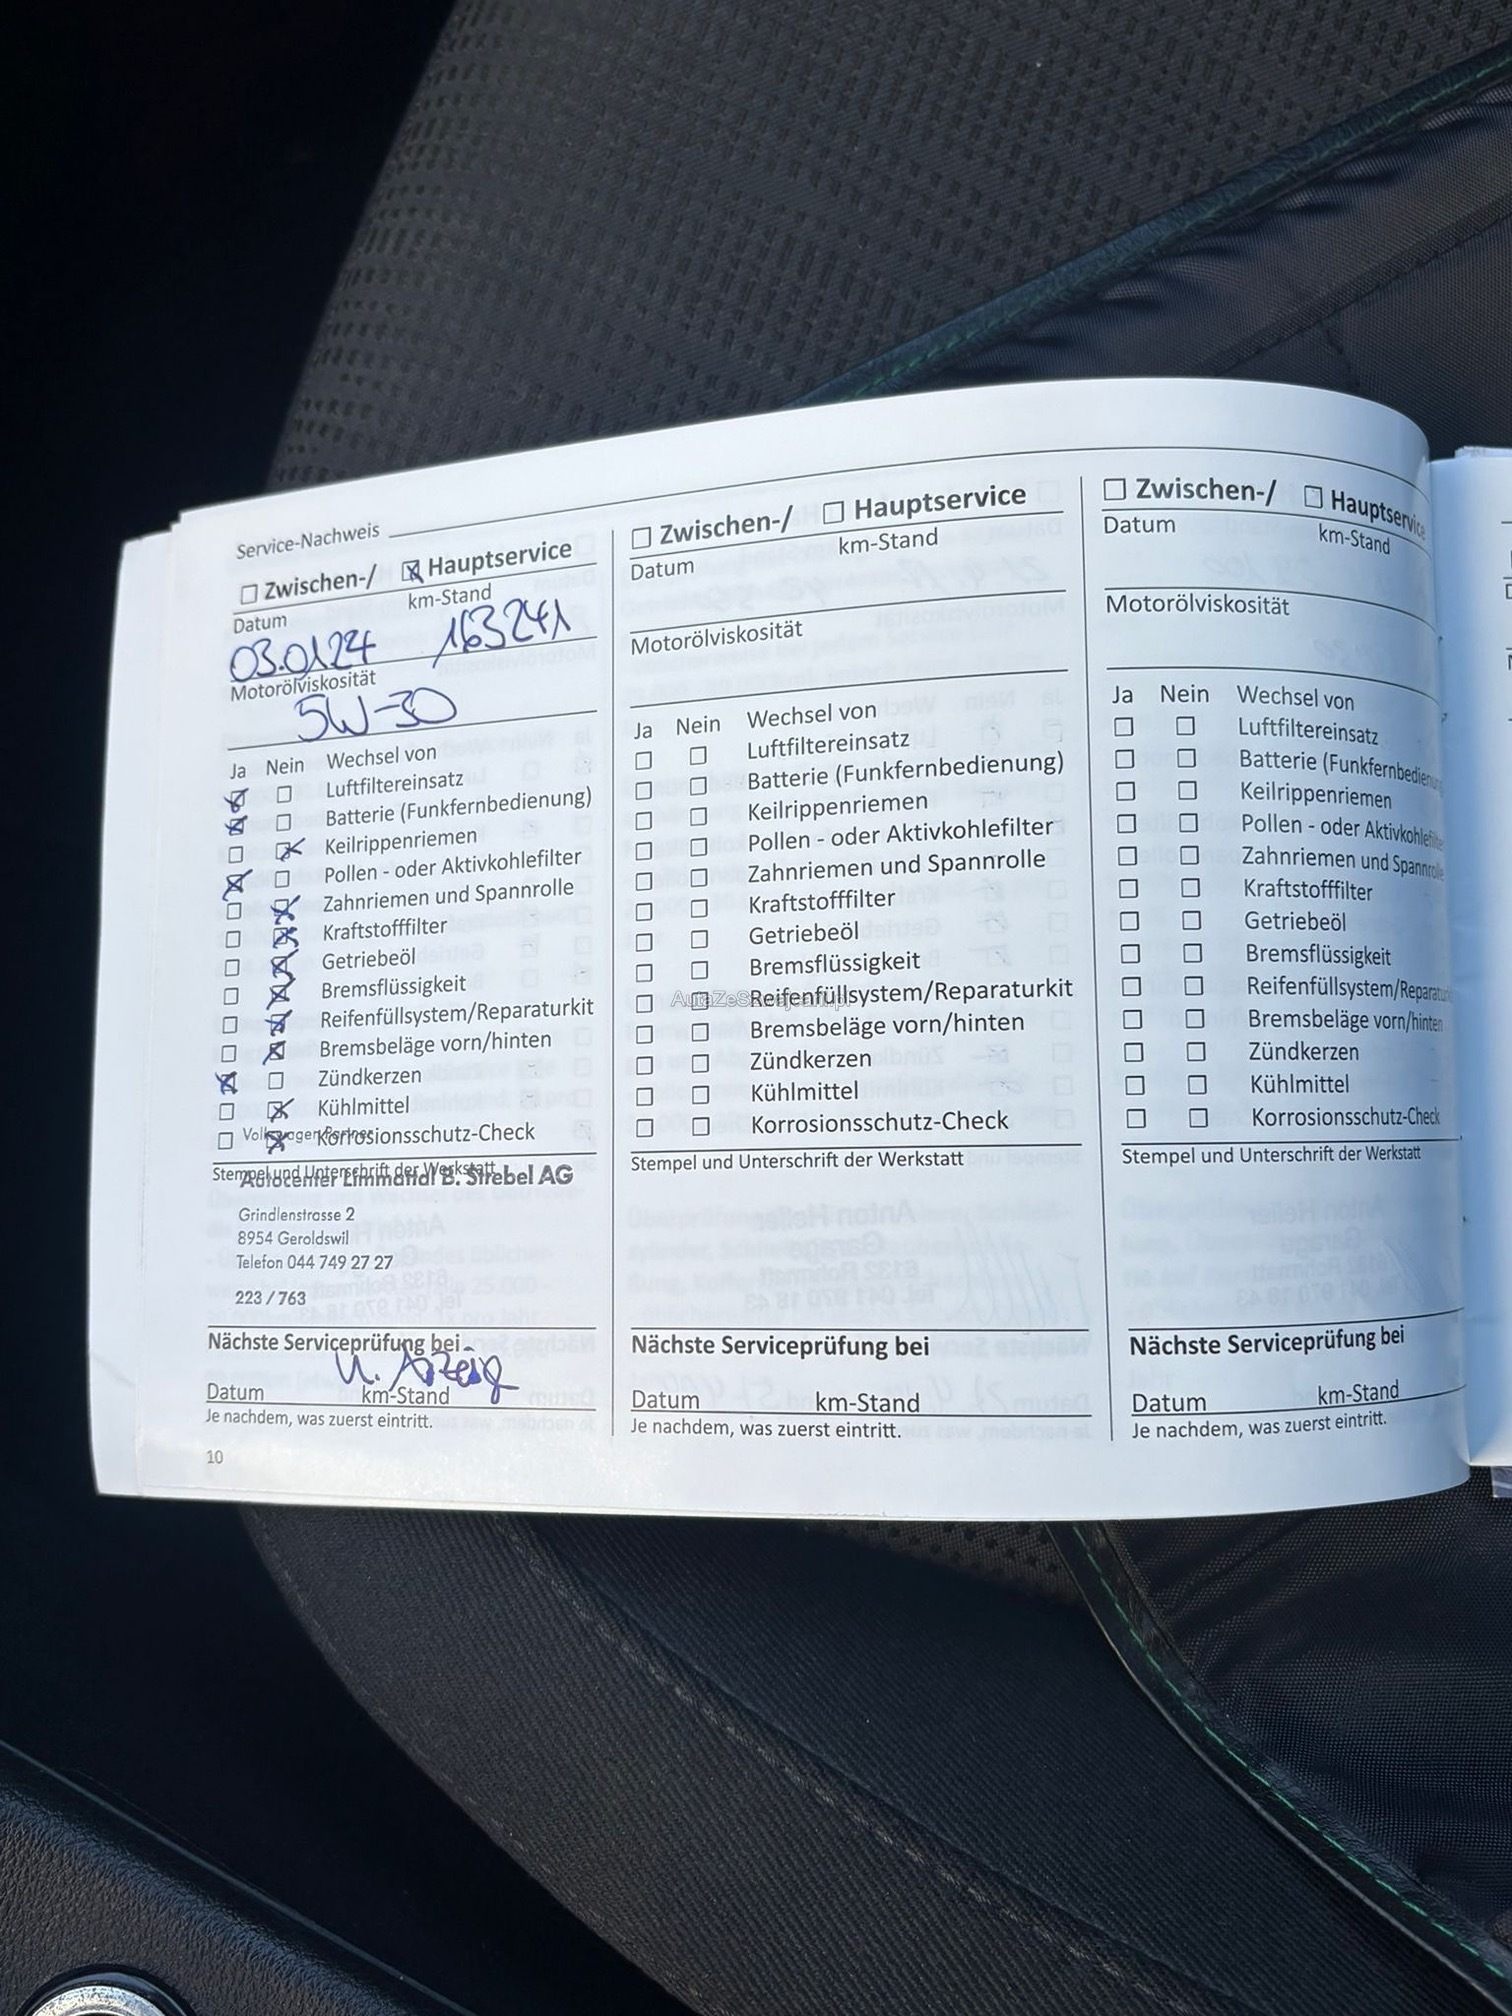 Service-Nachweis
☐ Zwischen-/ ☒ Hauptservice
Datum km-Stand
03.01.24 163241
Motorölviskosität
5W-30
Ja Nein Wechsel von
☒ ☐ Luftfiltereinsatz
☒ ☐ Batterie (Funkfernbedienung)
☐ ☒ Keilrippenriemen
☒ ☐ Pollen - oder Aktivkohlefilter
☐ ☒ Zahnriemen und Spannrolle
☐ ☒ Kraftstofffilter
☐ ☒ Getriebeöl
☐ ☒ Bremsflüssigkeit
☐ ☒ Reifenfüllsystem/Reparaturkit
☐ ☒ Bremsbeläge vorn/hinten
☒ ☐ Zündkerzen
☐ ☒ Kühlmittel
☐ ☒ Korrosionsschutz-Check
Volkswagen Partner
Stempel und Unterschrift der Werkstatt
Autocenter Limmattal B. Strebel AG
Grindlenstrasse 2
8954 Geroldswil
Telefon 044 749 27 27
223 / 763
Nächste Serviceprüfung bei
n. Anzeig
Datum km-Stand
Je nachdem, was zuerst eintritt.
10
☐ Zwischen-/ ☐ Hauptservice
Datum km-Stand
Motorölviskosität
Ja Nein Wechsel von
☐ ☐ Luftfiltereinsatz
☐ ☐ Batterie (Funkfernbedienung)
☐ ☐ Keilrippenriemen
☐ ☐ Pollen - oder Aktivkohlefilter
☐ ☐ Zahnriemen und Spannrolle
☐ ☐ Kraftstofffilter
☐ ☐ Getriebeöl
☐ ☐ Bremsflüssigkeit
☐ ☐ Reifenfüllsystem/Reparaturkit
☐ ☐ Bremsbeläge vorn/hinten
☐ ☐ Zündkerzen
☐ ☐ Kühlmittel
☐ ☐ Korrosionsschutz-Check
Stempel und Unterschrift der Werkstatt
Nächste Serviceprüfung bei
Datum km-Stand
Je nachdem, was zuerst eintritt.
☐ Zwischen-/ ☐ Hauptservice
Datum km-Stand
Motorölviskosität
Ja Nein Wechsel von
☐ ☐ Luftfiltereinsatz
☐ ☐ Batterie (Funkfernbedienung
☐ ☐ Keilrippenriemen
☐ ☐ Pollen - oder Aktivkohlefilter
☐ ☐ Zahnriemen und Spannrolle
☐ ☐ Kraftstofffilter
☐ ☐ Getriebeöl
☐ ☐ Bremsflüssigkeit
☐ ☐ Reifenfüllsystem/Reparaturk
☐ ☐ Bremsbeläge vorn/hinten
☐ ☐ Zündkerzen
☐ ☐ Kühlmittel
☐ ☐ Korrosionsschutz-Check
Stempel und Unterschrift der Werkstatt
Nächste Serviceprüfung bei
Datum km-Stand
Je nachdem, was zuerst eintritt.